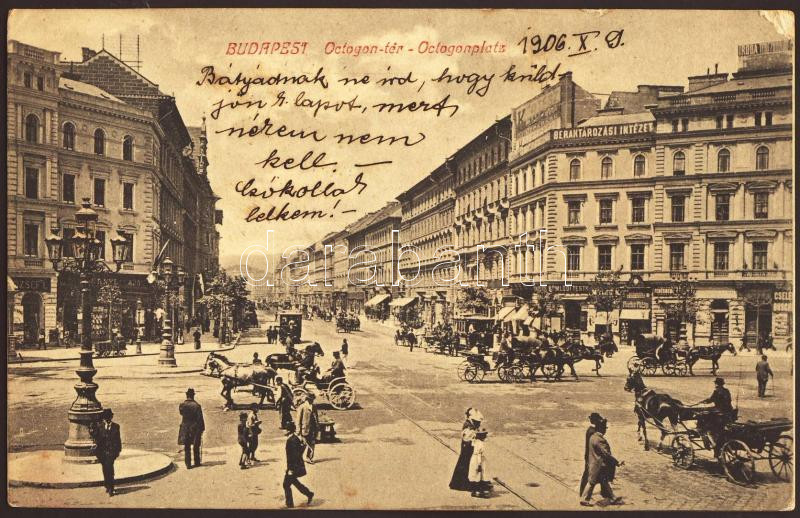 BUDAPEST Octogon-tér - Octogonplatz
1906. X. 9.
Bátyádnak ne ird, hogy küld
jön lapot, mert
nékem nem
kell. —
Csókollak
lelkem! -
BERAKTÁROZÁSI INTÉZET
darabanth